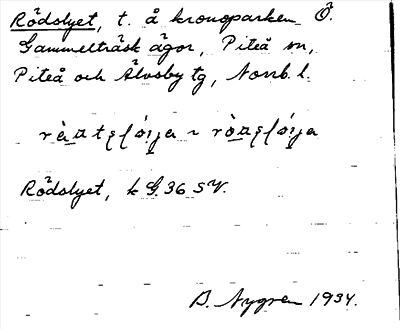 Rödslyet, t. å kronoparken Ö.
Gammelträsk ägor, Piteå sn,
Piteå och Älvsby tg, Norrb. l.
Rödslyet, k G. 36 SV.
B. Nygren 1934.